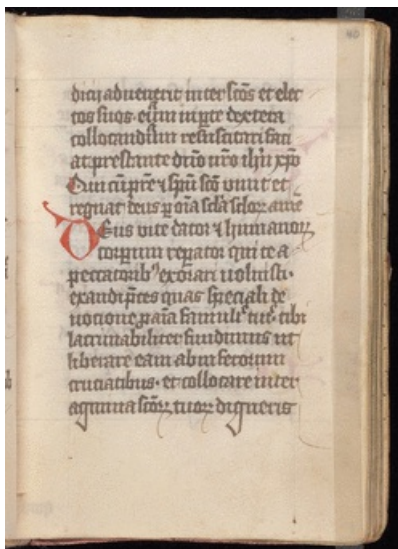 dicij advenerit inter scōs et elec
tos suos. et in ꝑte dextera
collocandum resuscitari faci
at. prestante dno nro ihu xpo
Qui cū pre ⁊ spu sco vivit et
regnat deus ꝑ oīa scla scloꝝ amē
Deus vite dator ⁊ humanoꝝ
corporum reparator qui te a
peccatorib9 exorari voluisti.
exaudi preces quas speciali de
votione ꝓ aīa famuli tui. tibi
lacrimabiliter fundimus ut
liberare eam ab infernorum
cruciatibus. et collocare inter
agmina scoꝝ tuoꝝ digneris